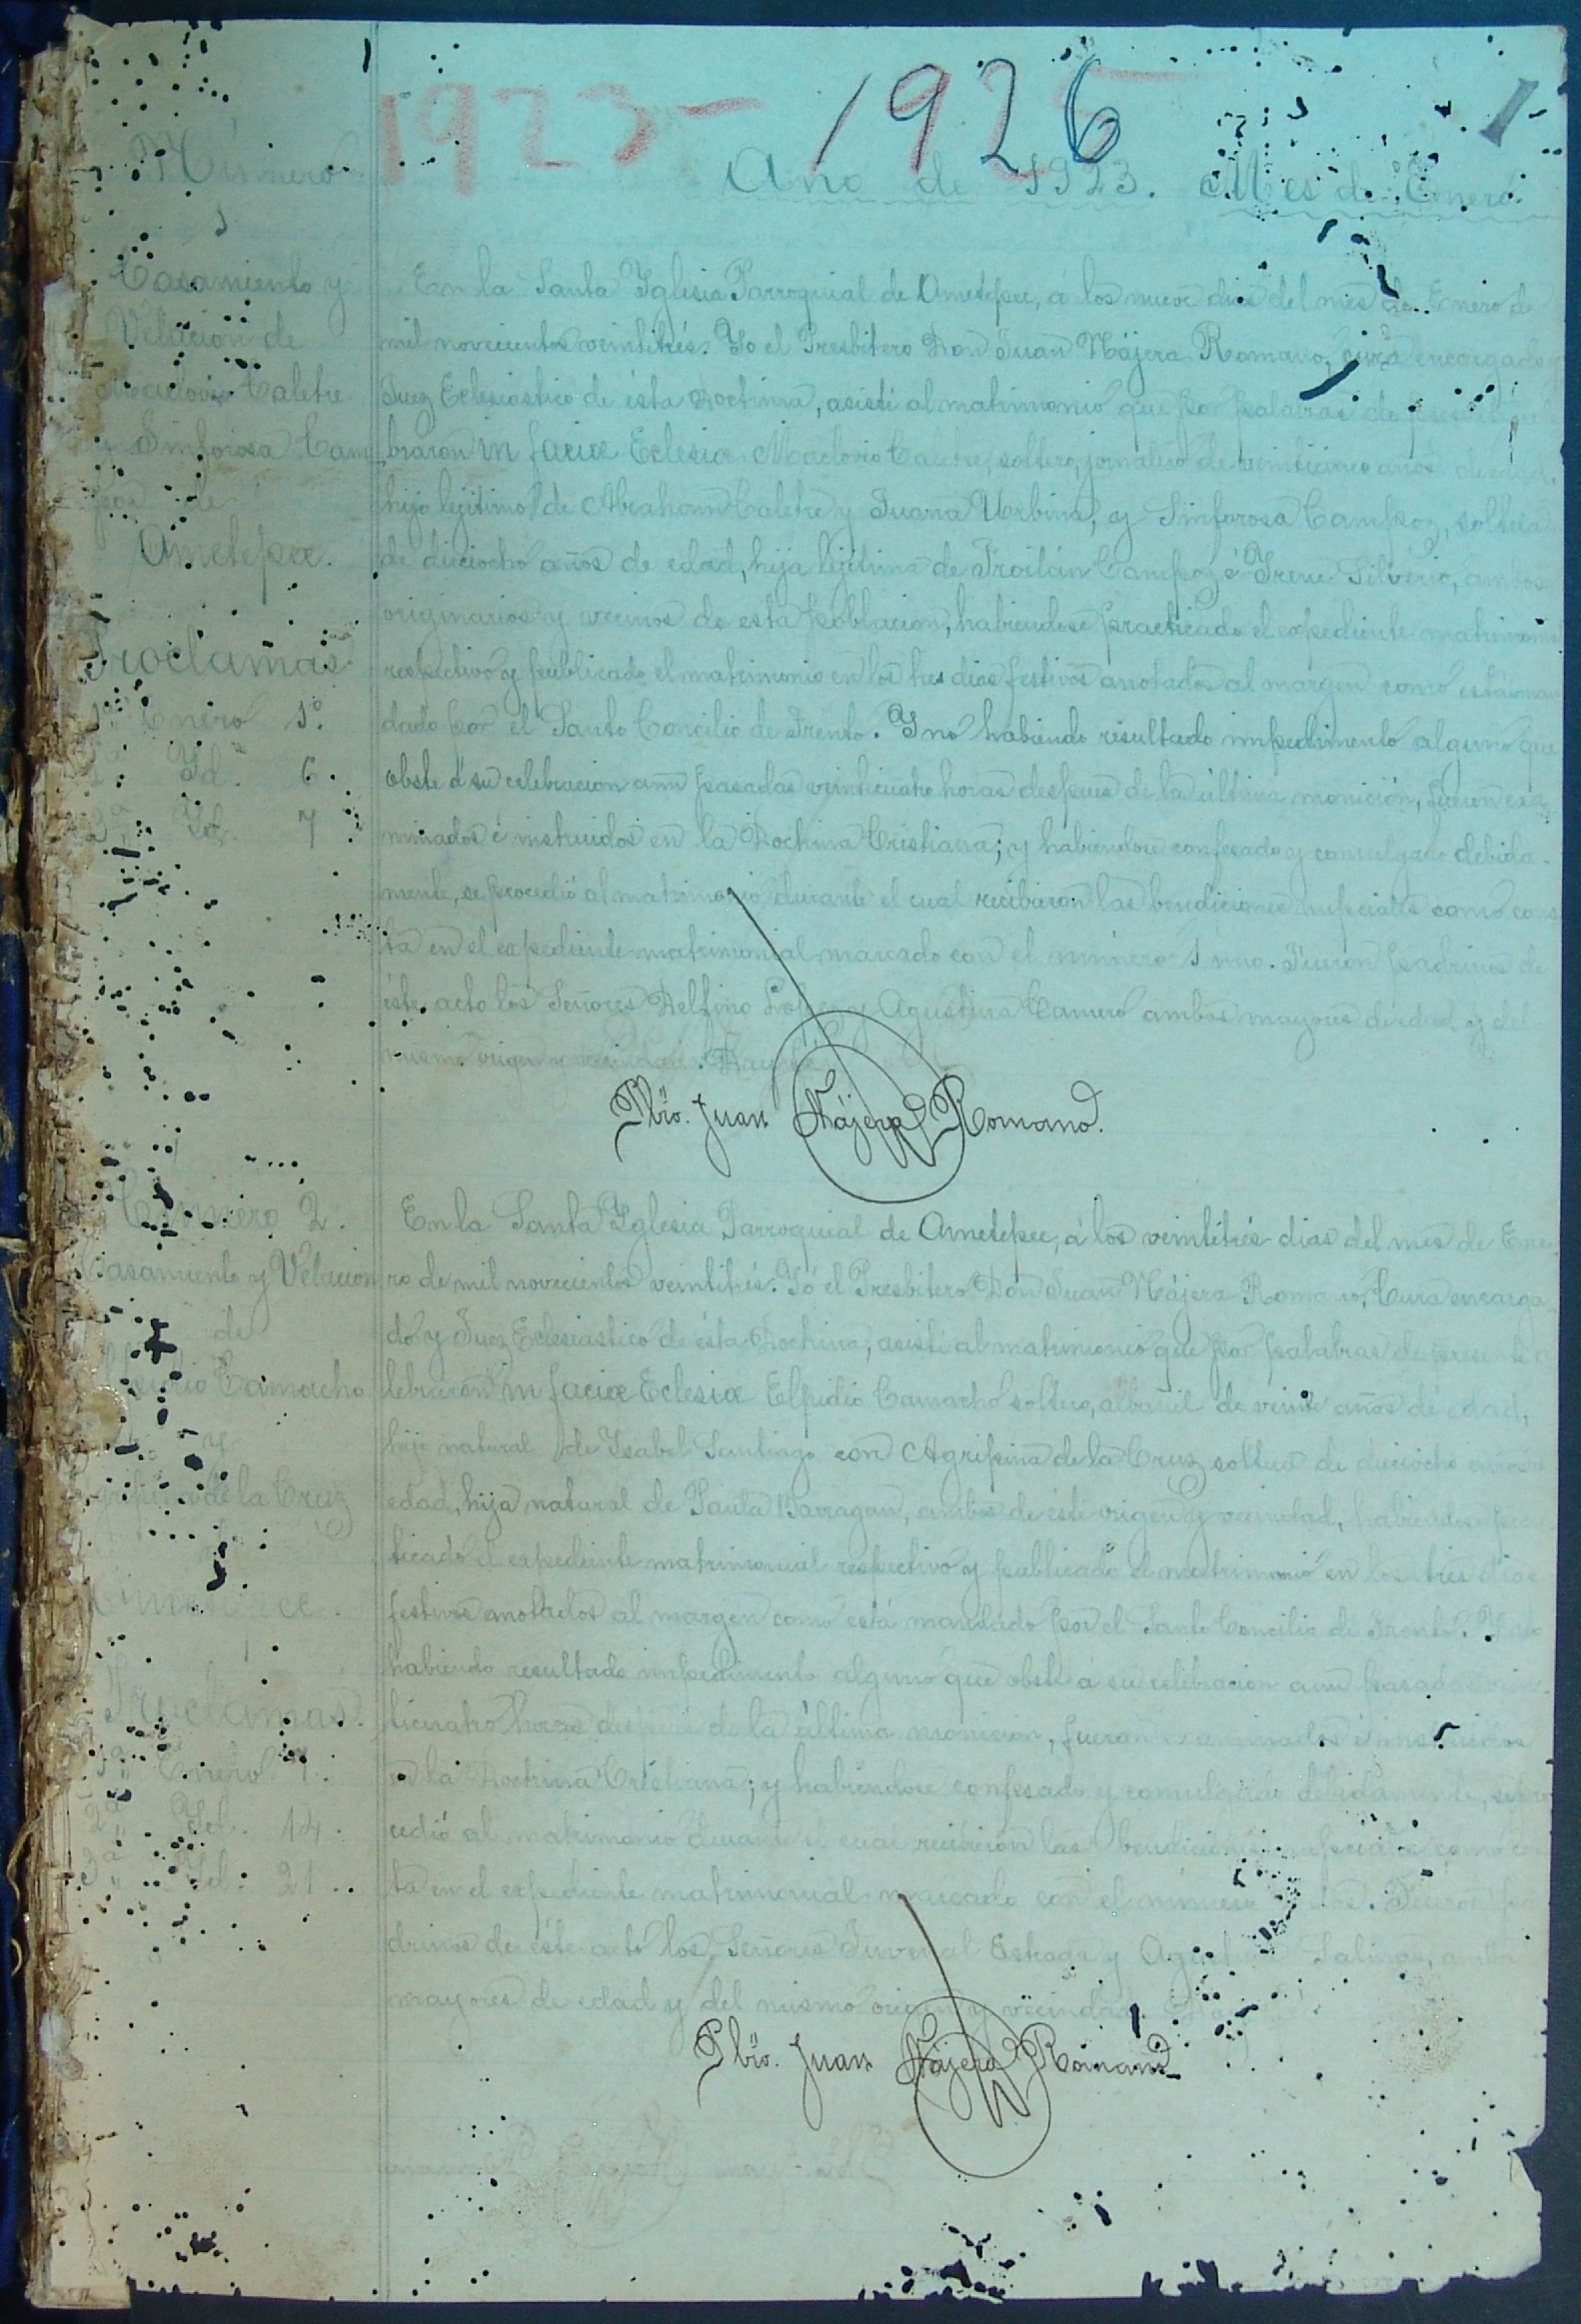 1923 - 1926
1
Año de 1923. Mes de Enero.
Número
1
Casamiento y
Velación de
Maclovio Caletre
y Sinforosa Cam
poz de
Ametepec.
Proclamas
1ª Enero 1º.
2ª Id. 6.
3ª Id. 7
En la Santa Yglesia Parroquial de Ametepec, á los nueve dias del mes de Enero de
mil novecientos veintitrés. Yo el Presbitero Don Juan Nájera Romano, cura encargado y
Juez Eclesiástico de ésta Doctrina, asistí al matrimonio que por palabras de presente
braron in faciæ Eclesiæ Maclovio Caletre, soltero, jornalero de veinticinco años de edad,
hijo lejitimo de Abrahann Caletre y Juana Urbina, y Sinforosa Campoz, soltera
de dieciocho años de edad, hija lejitima de Froilán Campoz é Irene Silverio, ambos
originarios y vecinos de esta poblacion, habiendose practicado el expediente matrimonial
respectivo y publicado el matrimonio en los tres dias festivos anotados al margen como está man
dado por el Santo Concilio de Trento. Y no habiendo resultado impedimento alguno que
obste á su celebracion aun pasadas veinticuatro horas despues de la última monición, fueron exa
minados é instruidos en la Doctrina Cristiana; y habiendose confesado y comulgado debida-
mente, se procedió al matrimonio durante el cual recibieron las bendiciones nupciales como cons
ta en el expediente matrimonial marcado con el número 1 uno. Fueron padrinos de
éste acto los Señores Delfino y Agustina Camero ambos mayores de edad y del
mismo origen y vecindad.
Pbro. Juan Nájera Romano.
Número 2.
Casamiento y Velacion
de
Elpidio Camacho
y
Agripina de la Cruz
Proclamas.
1ª Enero 7.
2ª Id. 14.
3ª Id. 21.
En la Santa Yglesia Parroquial de Ametepec, á los veintitrés dias del mes de Ene
ro de mil novecientos veintitrés. Yó el Presbitero Don Juan Nájera Romano, Cura encarga
do y Juez Eclesiastico de ésta Doctrina, asistí al matrimonio que por palabras de presente ce
lebraron in faciæ Eclesiæ Elpidio Camacho soltero, albañil de veinte años de edad,
hijo natural de Ysabel Santiago con Agripina de la Cruz soltera de dieciocho años
edad, hija natural de Paula Barragan, ambos de éste origen y vecindad, habiendose prac
ticado el expediente matrimonial respectivo y publicado el matrimonio en los tres dias
festivos anotados al margen como está mandado por el Santo Concilio de Trento. Y no
habiendo resultado impedimento alguno que obste á su celebracion aun pasadas vein
ticuatro horas despues de la última monicion, fueron examinados é instruidos
en la Doctrina Cristiana; y habiendose confesado y comulgado debidamente, se pro
cedió al matrimonio durante el cual recibieron las bendiciones nupciales como cons
ta en el expediente matrimonial marcado con el número dos. Fueron pa
drinos de éste acto los Señores Juvenal Estrada y Salinas, ambos
mayores de edad y del mismo origen y vecindad.
Pbro. Juan Nájera Romano